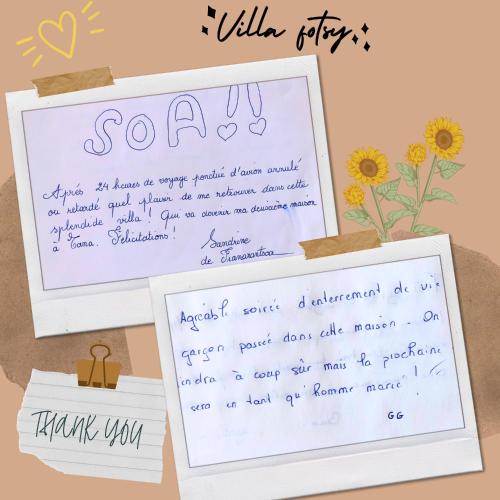 Villa fotsy
SOA !!
Après 24 heures de voyage ponctué d'avion annulé
ou retardé quel plaisir de me retrouver dans cette
splendide villa !! Qui va devenir ma deuxième maison
à Tana. Félicitations !
Sandrine
de Fianarantsoa
Agréable soirée d'enterrement de vie
garçon passée dans cette maison. On
indra à coup sûr mais la prochaine
sera en tant qu'homme marié !
GG
THANK YOU